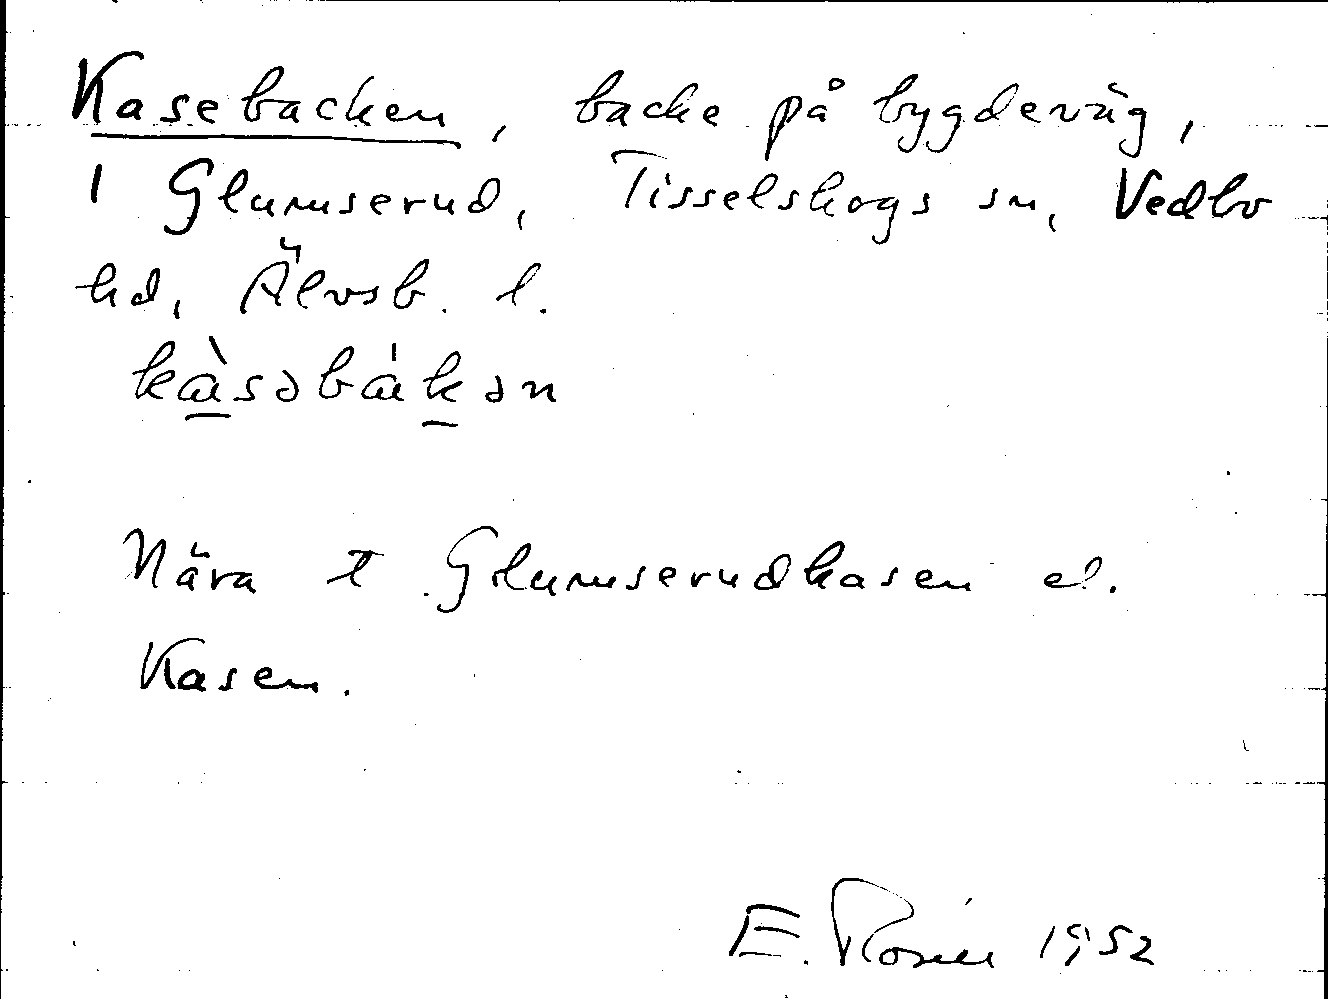 Kasebacken, backe på bygdeväg,
i Glumserud, Tisselskogs sn, Vedbo
hd, Älvsb. l.
kàsəbák̲ən
Nära t Glumserudkasen el.
Kasen.
E. Rosén 1952